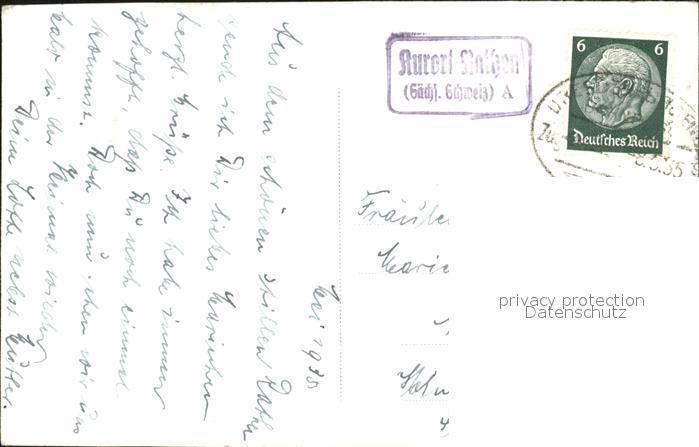 Mai 1935
Aus dem schönen stillen Rathen
sende ich Dir liebes Mariechen
herzl. Grüße. Ich habe immer
gehofft, daß Du noch einmal
kommst. Doch nun sehen wir uns
bald in der Heimat wieder
Deine Lotte nebst Mutter.
Kurort Rathen
(Sächs. Schweiz) A
6 6
Deutsches Reich
Fräulein
Marie
privacy protection
Datenschutz